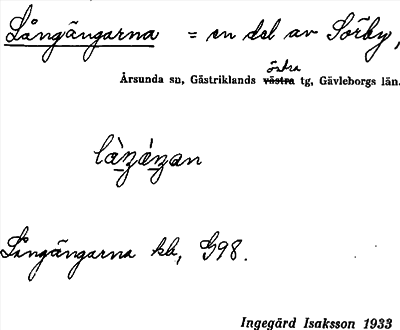 Långängarna = en del av Sörby,
östra
Årsunda sn, Gästriklands västra tg, Gävleborgs län.
Långängarna kb, G98.
Ingegärd Isaksson 1933